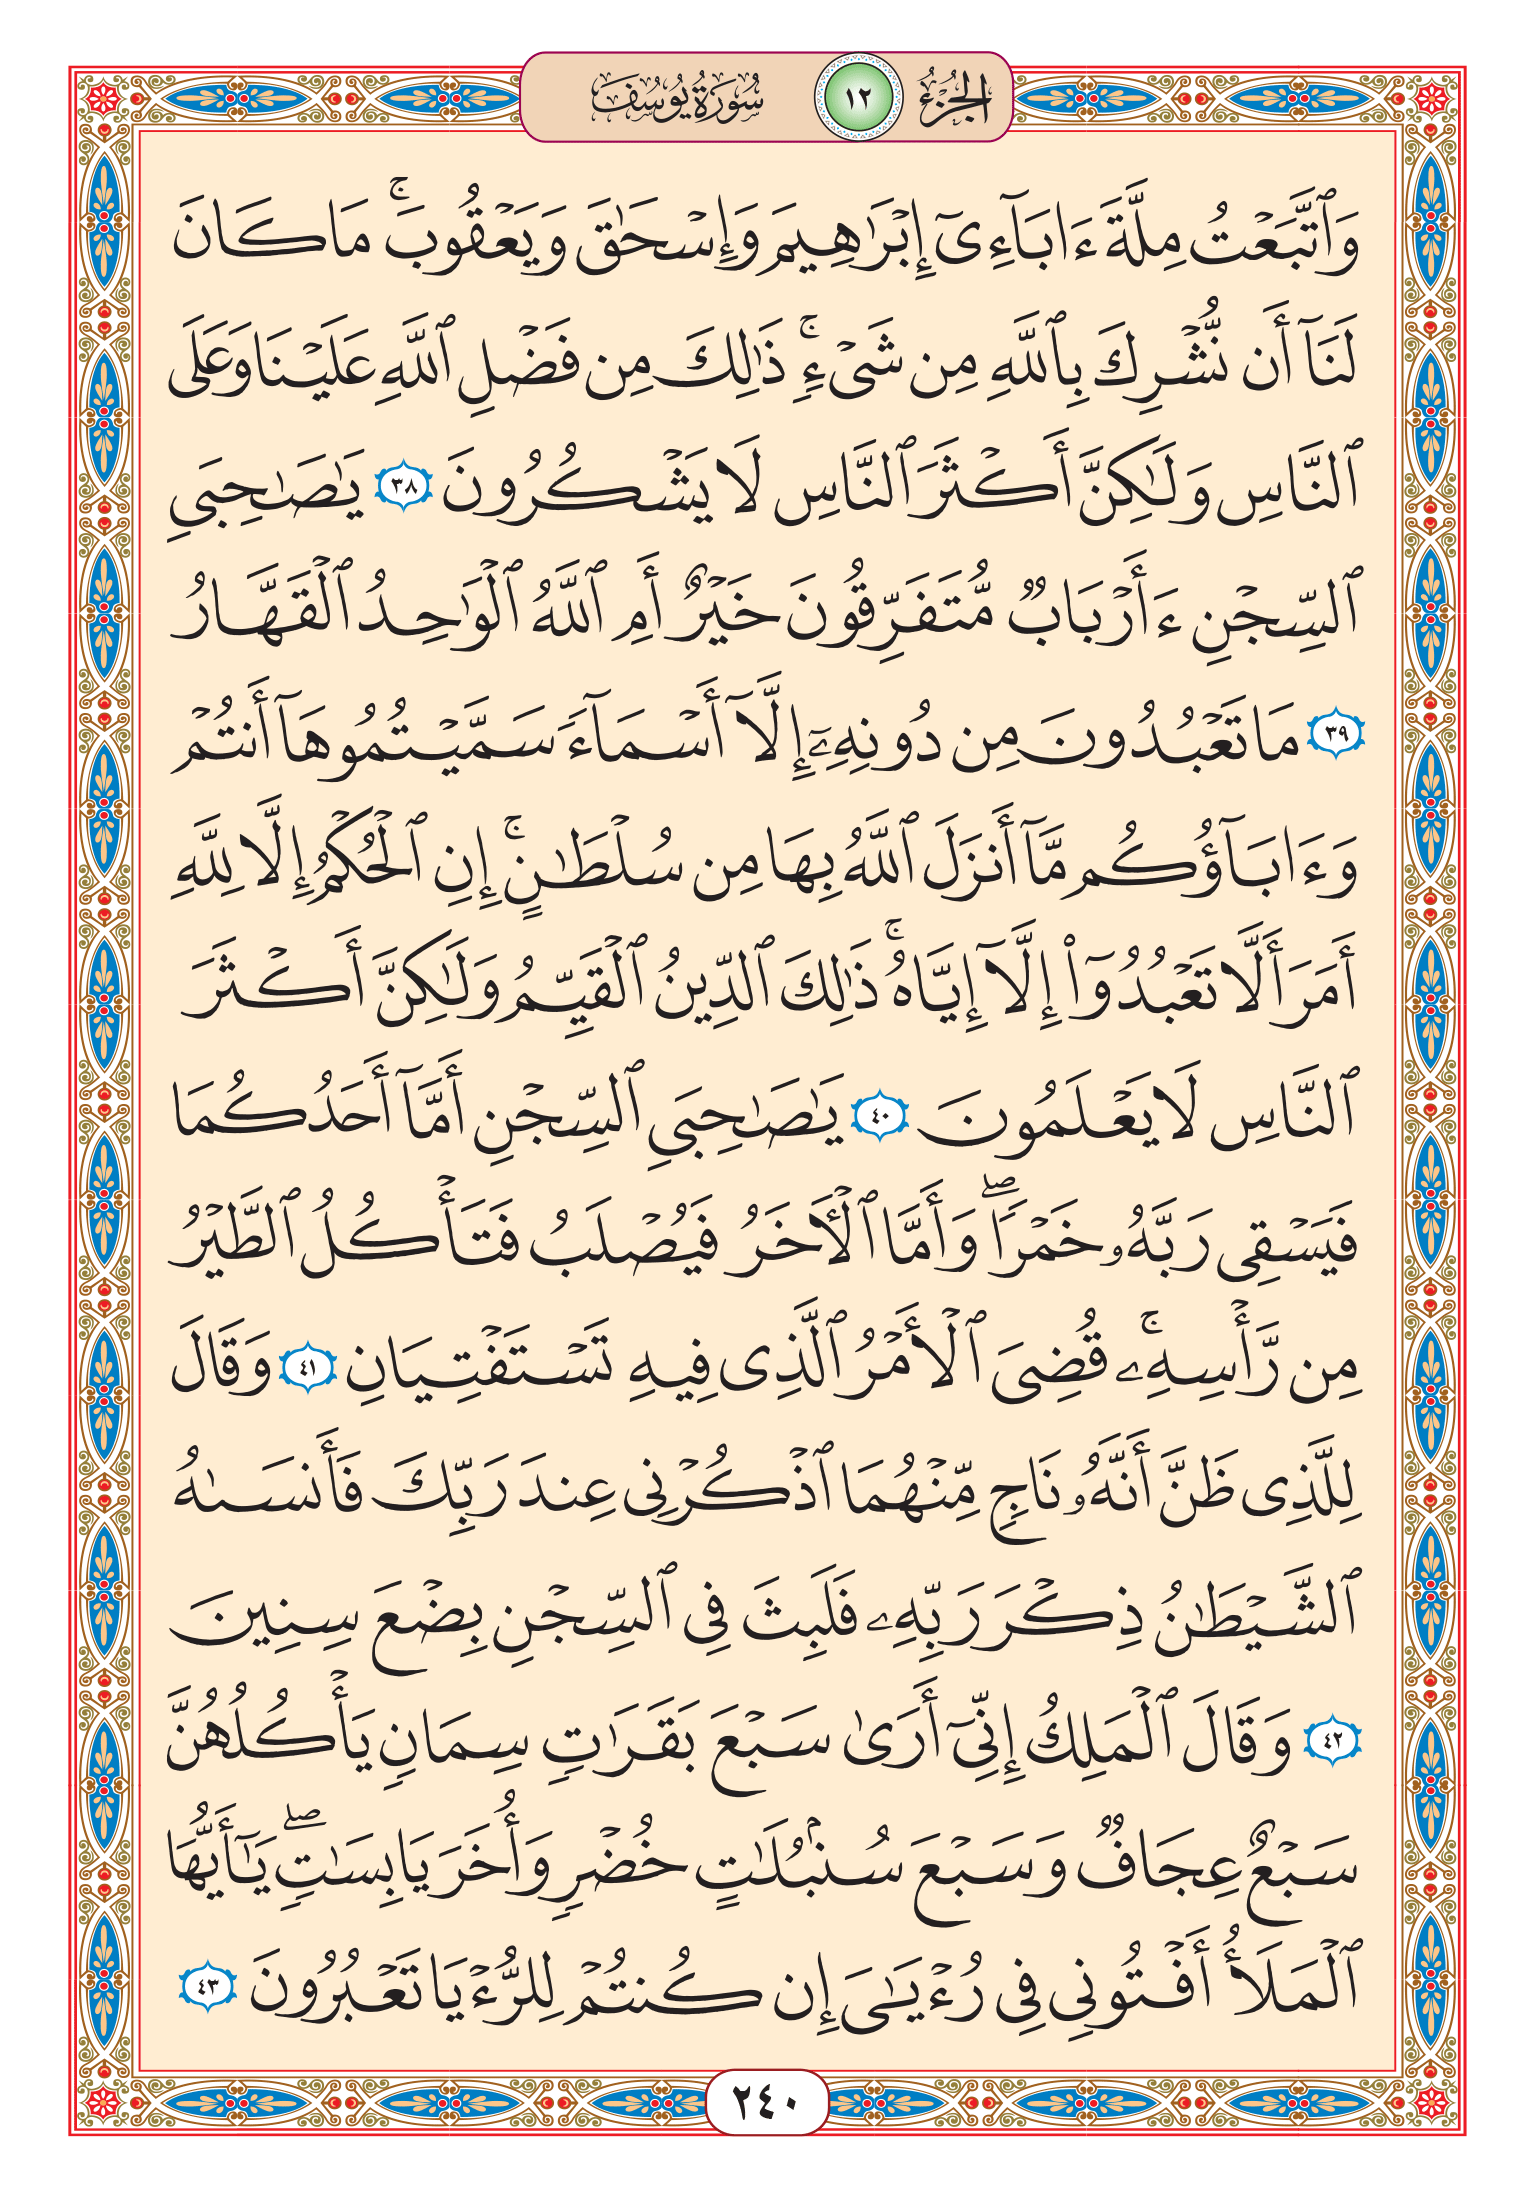 الجزء ١٢ سورة يوسف
وَٱتَّبَعْتُ مِلَّةَ ءَابَآءِىٓ إِبْرَٰهِيمَ وَإِسْحَٰقَ وَيَعْقُوبَ ۚ مَا كَانَ
لَنَآ أَن نُّشْرِكَ بِٱللَّهِ مِن شَىْءٍ ۚ ذَٰلِكَ مِن فَضْلِ ٱللَّهِ عَلَيْنَا وَعَلَى
ٱلنَّاسِ وَلَٰكِنَّ أَكْثَرَ ٱلنَّاسِ لَا يَشْكُرُونَ ٣٨ يَٰصَٰحِبَىِ
ٱلسِّجْنِ ءَأَرْبَابٌ مُّتَفَرِّقُونَ خَيْرٌ أَمِ ٱللَّهُ ٱلْوَٰحِدُ ٱلْقَهَّارُ
٣٩ مَا تَعْبُدُونَ مِن دُونِهِۦٓ إِلَّآ أَسْمَآءً سَمَّيْتُمُوهَآ أَنتُمْ
وَءَابَآؤُكُم مَّآ أَنزَلَ ٱللَّهُ بِهَا مِن سُلْطَٰنٍ ۚ إِنِ ٱلْحُكْمُ إِلَّا لِلَّهِ
أَمَرَ أَلَّا تَعْبُدُوٓا۟ إِلَّآ إِيَّاهُ ۚ ذَٰلِكَ ٱلدِّينُ ٱلْقَيِّمُ وَلَٰكِنَّ أَكْثَرَ
ٱلنَّاسِ لَا يَعْلَمُونَ ٤٠ يَٰصَٰحِبَىِ ٱلسِّجْنِ أَمَّآ أَحَدُكُمَا
فَيَسْقِى رَبَّهُۥ خَمْرًا ۖ وَأَمَّا ٱلْءَاخَرُ فَيُصْلَبُ فَتَأْكُلُ ٱلطَّيْرُ
مِن رَّأْسِهِۦ ۚ قُضِىَ ٱلْأَمْرُ ٱلَّذِى فِيهِ تَسْتَفْتِيَانِ ٤١ وَقَالَ
لِلَّذِى ظَنَّ أَنَّهُۥ نَاجٍ مِّنْهُمَا ٱذْكُرْنِى عِندَ رَبِّكَ فَأَنسَىٰهُ
ٱلشَّيْطَٰنُ ذِكْرَ رَبِّهِۦ فَلَبِثَ فِى ٱلسِّجْنِ بِضْعَ سِنِينَ
٤٢ وَقَالَ ٱلْمَلِكُ إِنِّىٓ أَرَىٰ سَبْعَ بَقَرَٰتٍ سِمَانٍ يَأْكُلُهُنَّ
سَبْعٌ عِجَافٌ وَسَبْعَ سُنۢبُلَٰتٍ خُضْرٍ وَأُخَرَ يَابِسَٰتٍ ۖ يَٰٓأَيُّهَا
ٱلْمَلَأُ أَفْتُونِى فِى رُءْيَٰىَ إِن كُنتُمْ لِلرُّءْيَا تَعْبُرُونَ ٤٣
٢٤٠